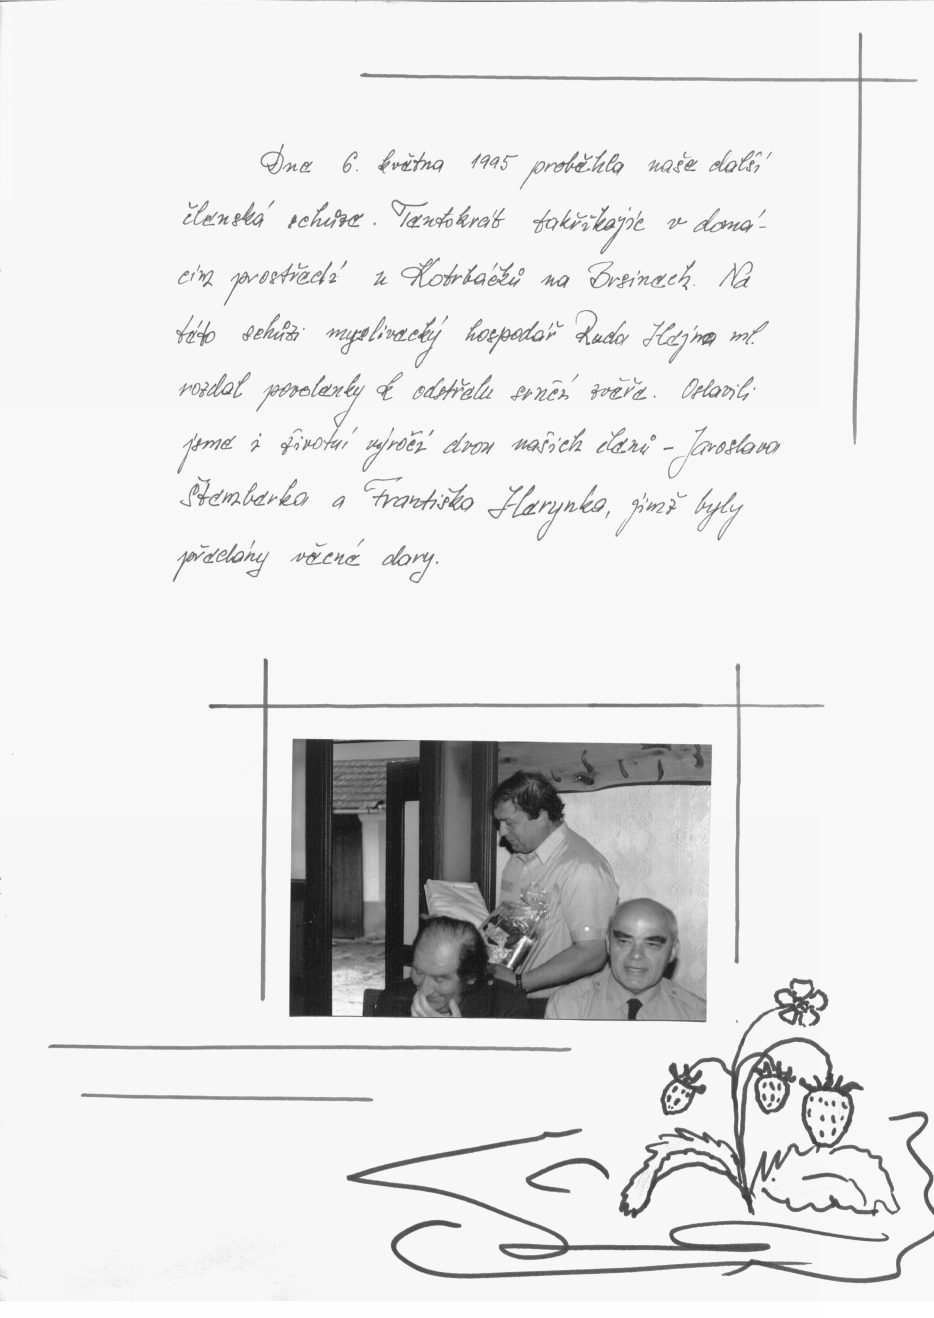 Dne 6. května 1995 proběhla naše další
členská schůze. Tentokrát takříkajíc v domá-
cím prostředí u Kotrbáčků na Brsinech. Na
této schůzi myslivecký hospodář Ruda Hájno ml.
rozdal povolenky k odstřelu srnčí zvěře. Oslavili
jsme i životní výročí dvou našich členů - Jaroslava
Štemberka a Františka Harynka, jimž byly
předány věcné dary.